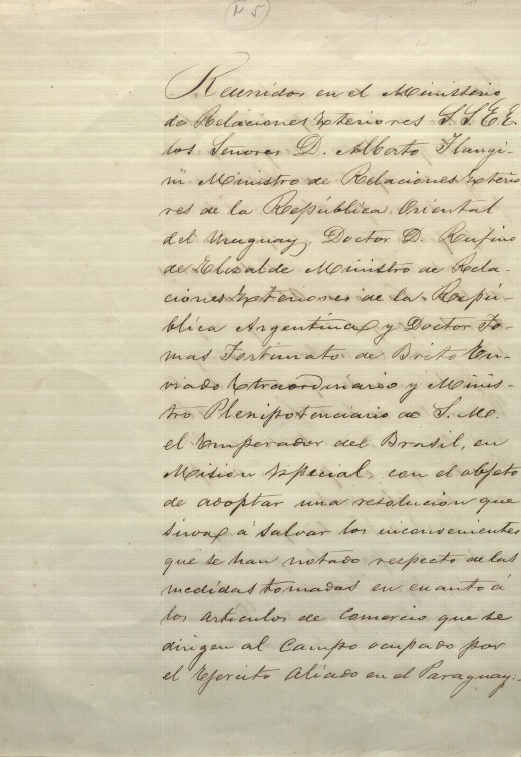 N 5
Reunidos en el Ministerio
de Relaciones Exteriores S.S.E.E.
los Señores D. Alberto Flangi-
ni Ministro de Relaciones Exterio
res de la República Oriental
del Uruguay, Doctor D. Rufino
de Elizalde Ministro de Rela-
ciones Exteriores de la Repú-
blica Argentina y Doctor To-
mas Fortunato de Brito En-
viado Extraordinario y Minis-
tro Plenipotenciario de S. M.
el Emperador del Brasil, en
Mision Especial, con el objeto
de adoptar una resolucion que
sirva á salvar los inconvenientes
que se han notado respecto de las
medidas tomadas en cuanto á
los articulos de Comercio que se
dirigen al Campo ocupado por
el Ejercito Aliado en el Paraguay: